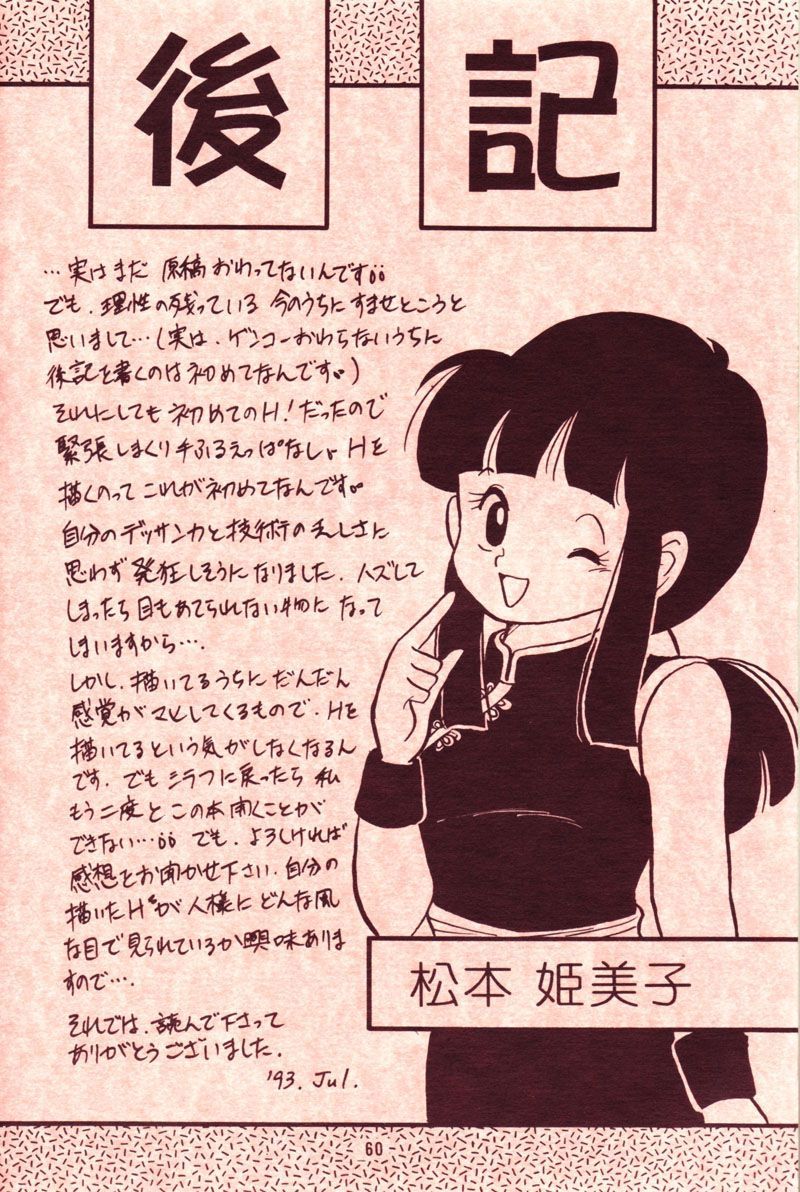 後記
…実はまだ 原稿おわってないんです。
でも、理性の残っている 今のうちに すませとこうと
思いまして…(実は、ゲンコーおわらないうちに
後記を書くのは初めてなんです。)
それにしても 初めてのH!だったので
緊張しまくり手ふるえっぱなし。Hを
描くのって これが初めてなんです。
自分のデッサン力と技術の乏しさに
思わず 発狂しそうになりました、ハズして
しまったら目もあてられない物に なって
しまいますから…、
しかし、描いてるうちに だんだん
感覚がマヒしてくるもので、Hを
描いてるという気がしなくなるん
です、でもシラフに戻ったら 私
もう二度と この本開くことが
できない… でも、よろしければ
感想をお聞かせ下さい、自分の
描いたHが 人様に どんな風
な目で見られているか興味ありま
すので…、
それでは、読んで下さって
ありがとうございました、
'93. Jul.
松本 姫美子
60